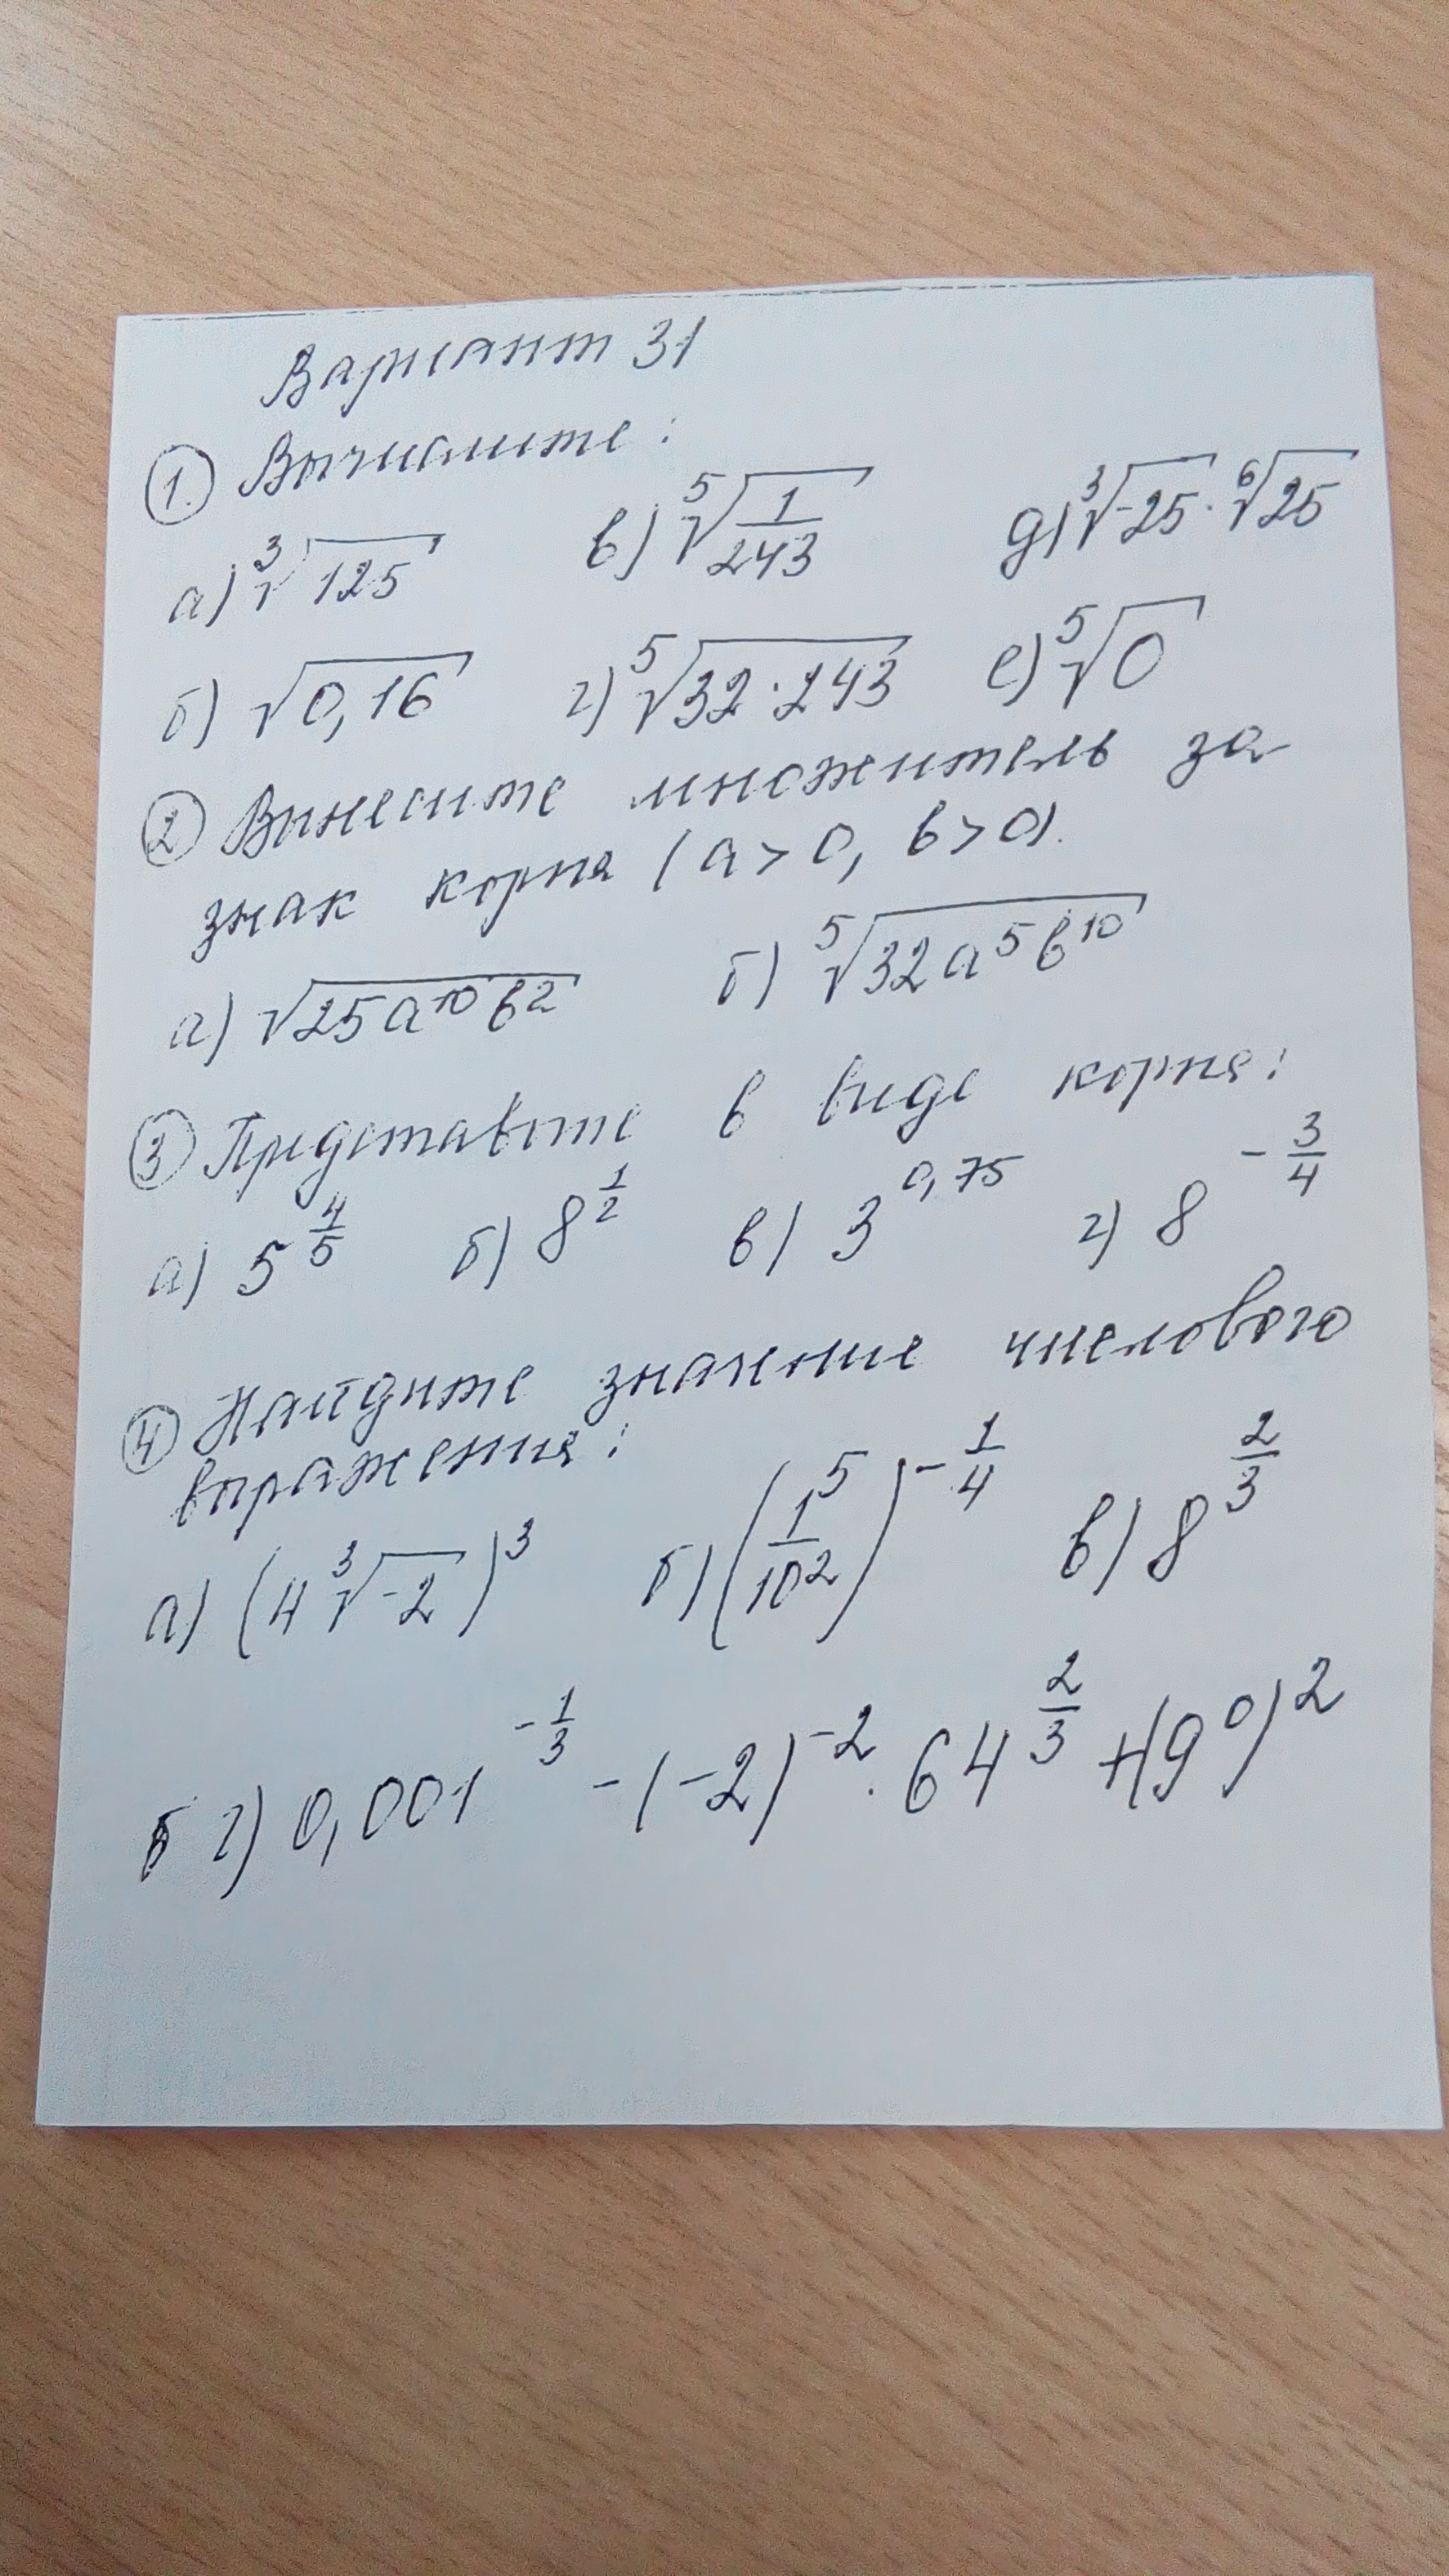 Вариант 31
① Вычислите:
а) ∛125 в) ⁵√(1/243) д) ∛-25 · ⁶√25
б) √0,16 г) ⁵√32·243 е) ⁵√0
② Вынесите множитель за
знак корня (a>0, b>0).
а) √25a¹⁰b² б) ⁵√32a⁵b¹⁰
③ Представьте в виде корня:
а) 5^(4/5) б) 8^(1/2) в) 3^0,75 г) 8^(-3/4)
④ Найдите значение числового
выражения:
а) (4∛-2)³ б) (1⁵/10²)^(-1/4) в) 8^(2/3)
г) 0,001^(-1/3) - (-2)⁻² · 64^(2/3) + (9⁰)²